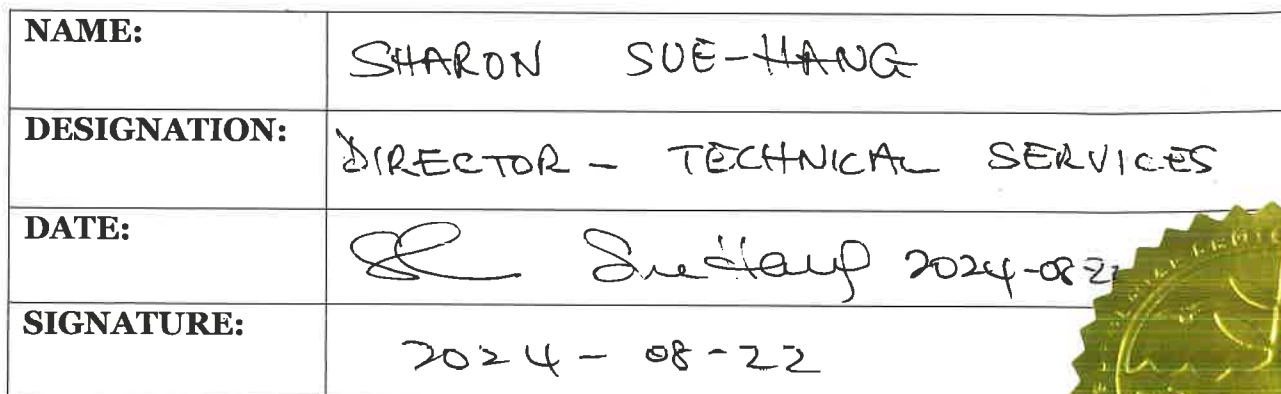 NAME: SHARON SUE-HANG
DESIGNATION: DIRECTOR - TECHNICAL SERVICES
DATE: Sue Hang 2024-08-2
SIGNATURE: 2024-08-22